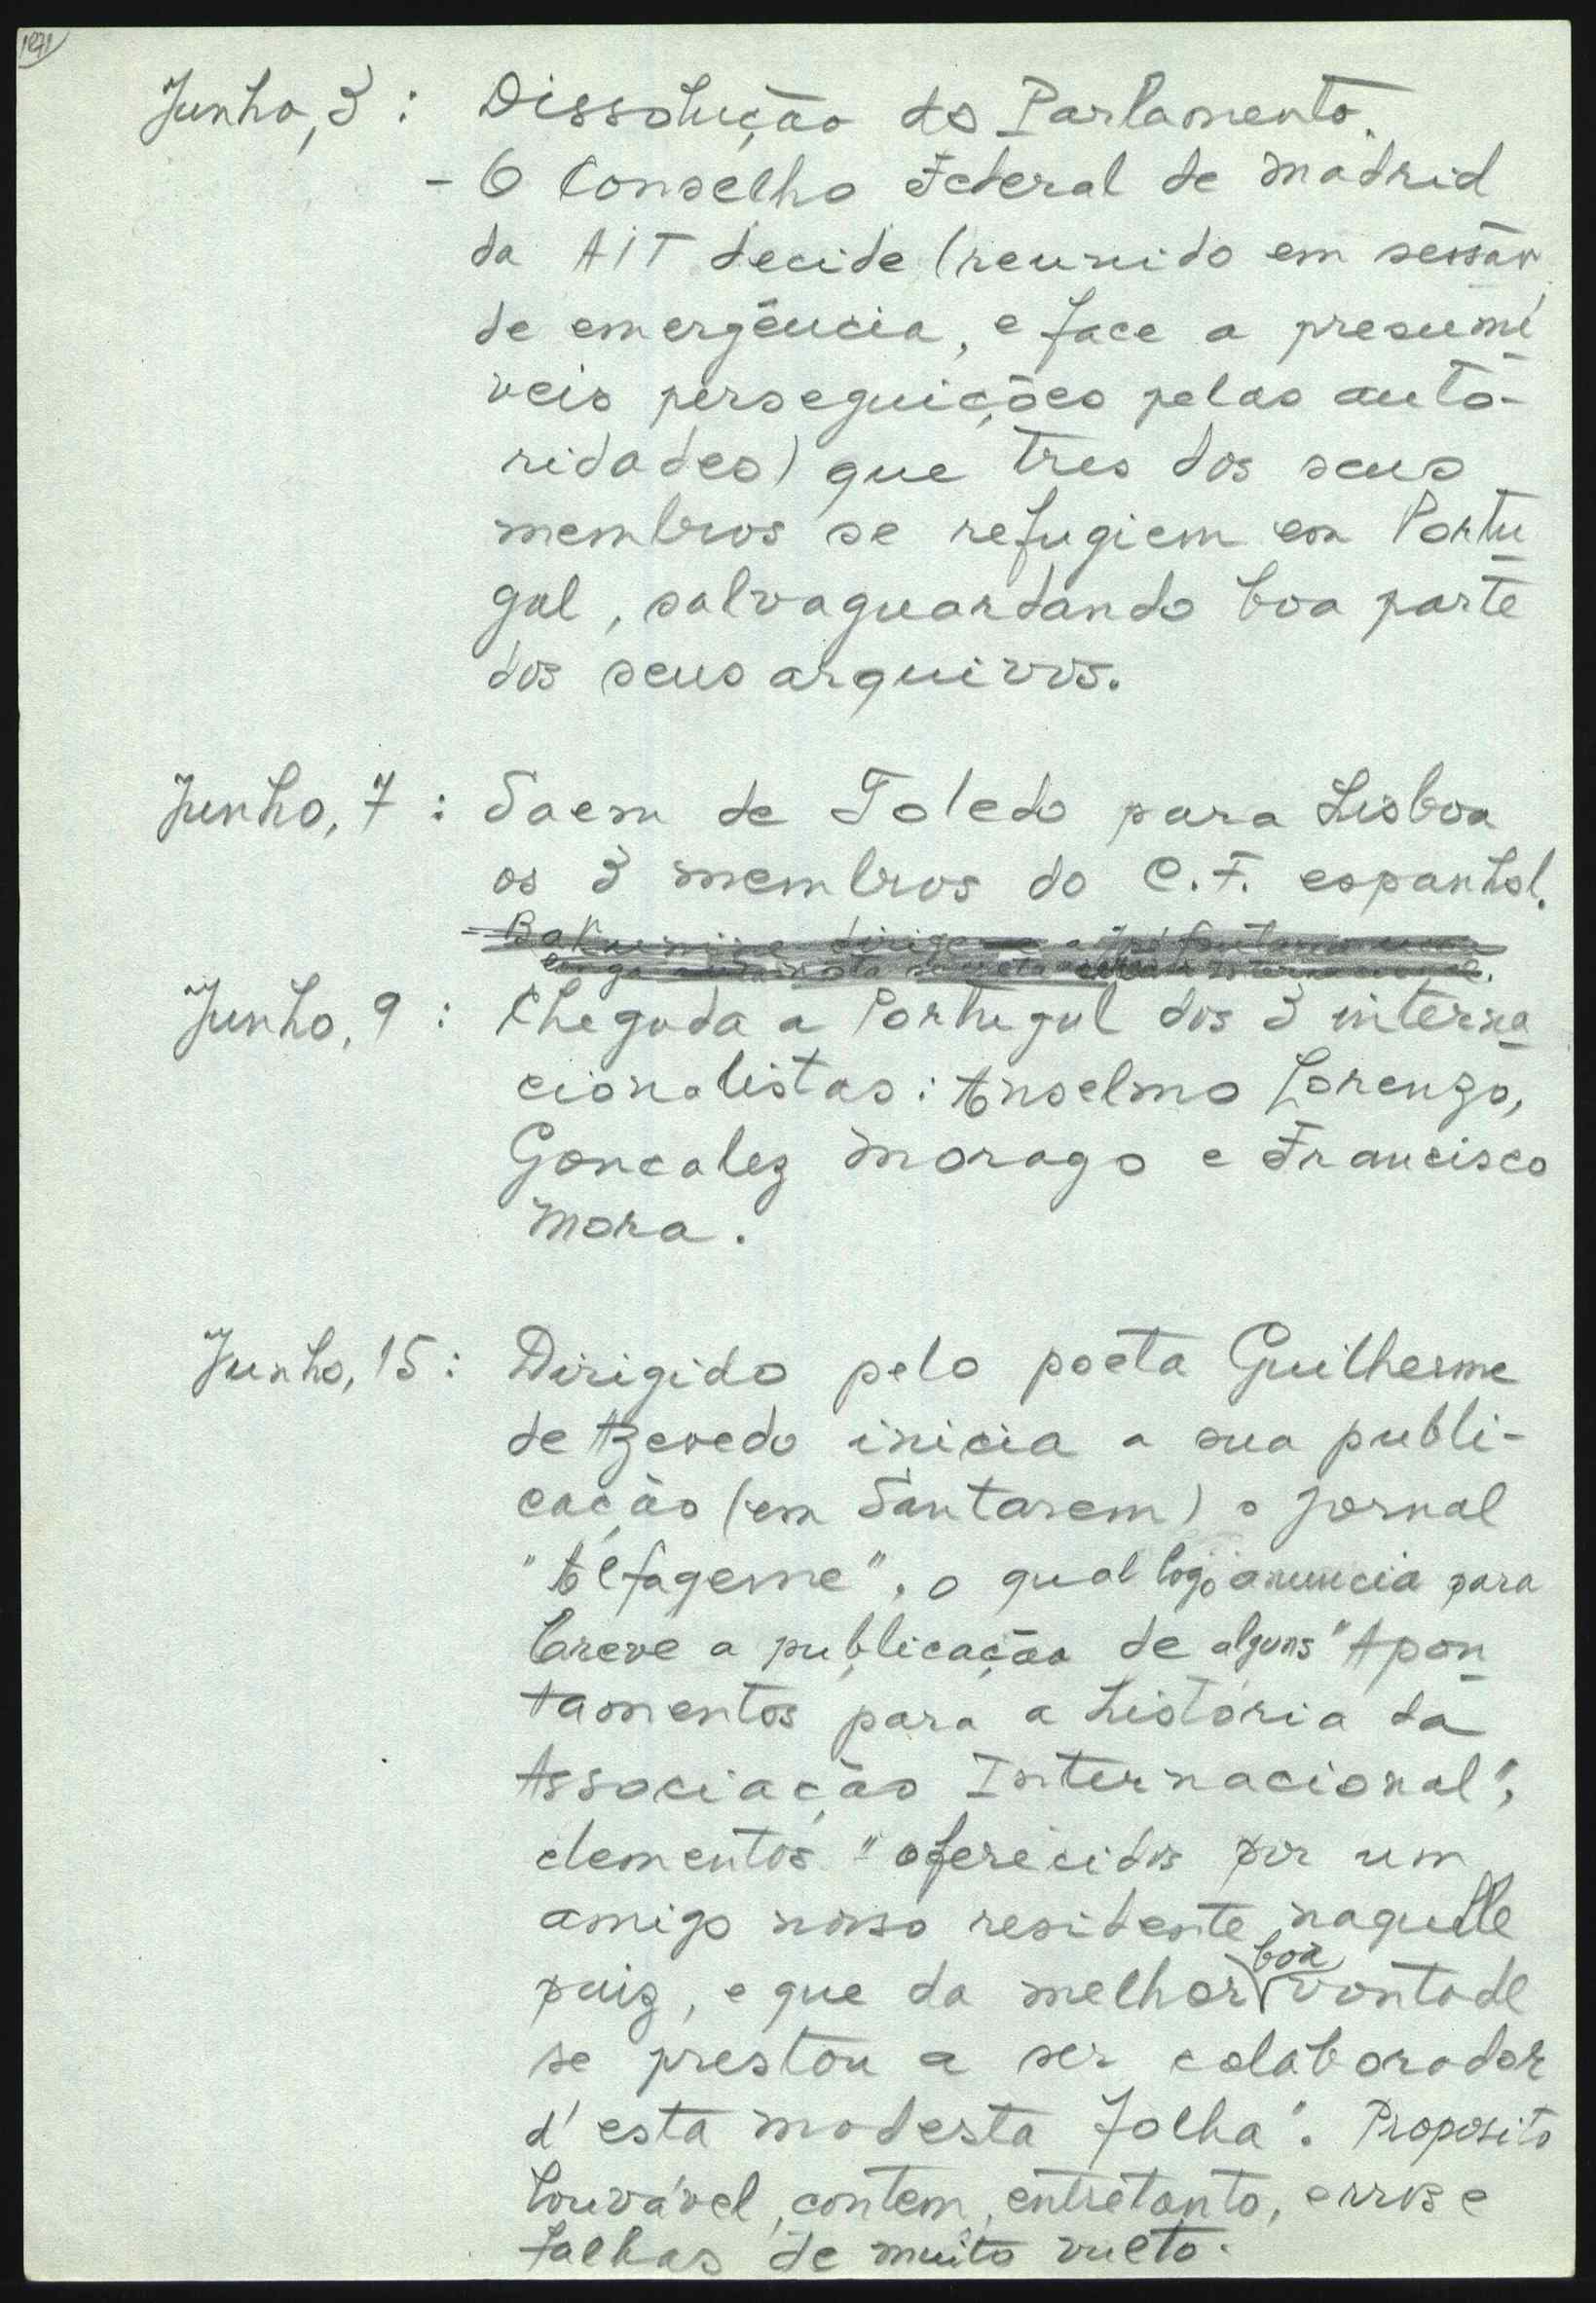 1871
Junho, 3 : Dissolução do Parlamento.
- O Conselho Federal de Madrid
da AIT decide (reunido em sessão
de emergência, e face a presumí
veis perseguições pelas auto-
ridades) que tres dos seus
membros se refugiem em Portu
gal, salvaguardando boa parte
dos seus arquivos.
Junho, 7 : Saem de Toledo para Lisboa
os 3 membros do C.F. espanhol.
Junho, 9 : Chegada a Portugal dos 3 interna
cionalistas : Anselmo Lorenzo,
Goncalez Morago e Francisco
Mora.
Junho, 15 : Dirigido pelo poeta Guilherme
de Azevedo inicia a sua publi-
cação (em Santarem) o jornal
"Alfageme", o qual logo anuncia para
breve a publicação de alguns "Apon
tamentos para a história da
Associação Internacional",
elementos "oferecidos por um
amigo nosso residente naquelle
paiz, e que da melhor boa vontade
se prestou a ser colaborador
d'esta modesta folha". Proposito
louvável, contem, entretanto, erros e
falhas de muito vulto.